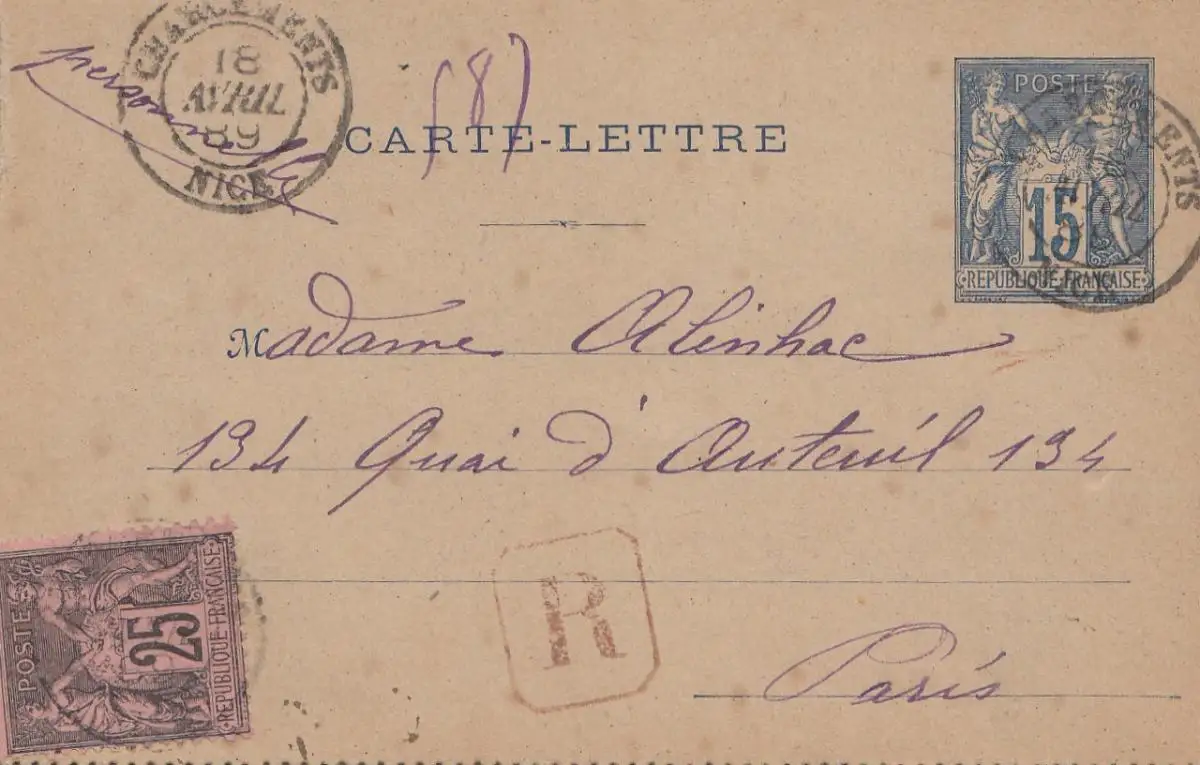 CHARGEMENTS
18
AVRIL
89
NICE
personnelle
(8)
CARTE-LETTRE
POSTE
15
REPUBLIQUE FRANÇAISE
Madame Alinhac
134 Quai d'Auteuil 134
POSTE
25
REPUBLIQUE FRANÇAISE
R
Paris